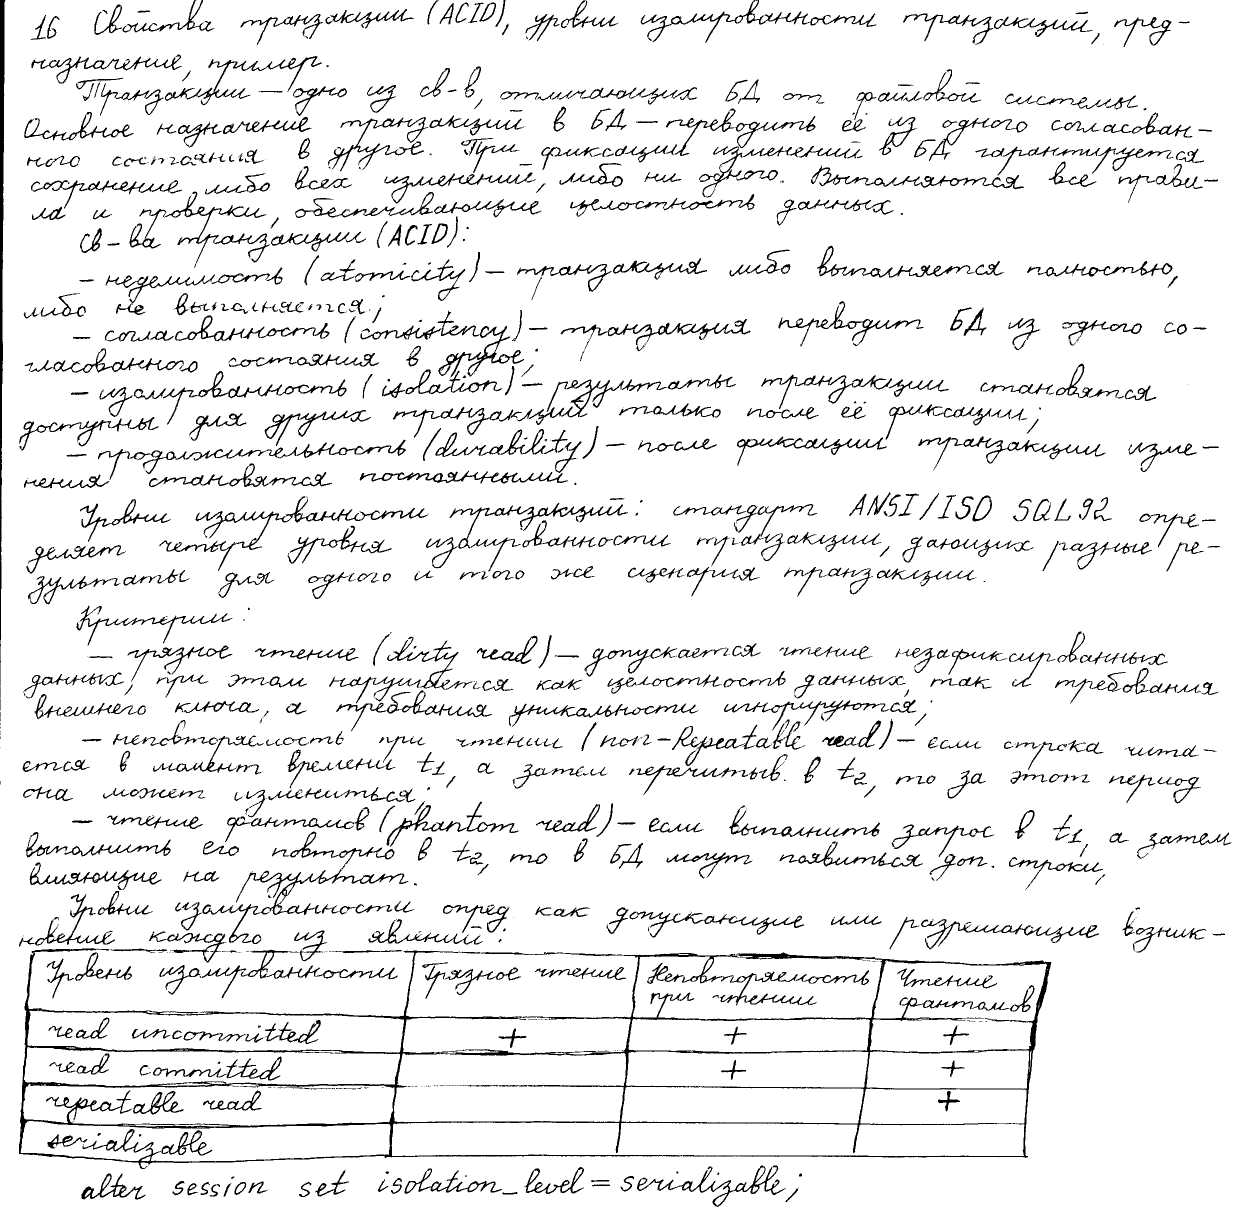 16 Свойства транзакции (ACID), уровни изолированности транзакций, пред-
назначение, пример.
Транзакции — одно из св-в, отличающих БД от файловой системы.
Основное назначение транзакций в БД — переводить её из одного согласован-
ного состояния в другое. При фиксации изменений в БД гарантируется
сохранение либо всех изменений, либо ни одного. Выполняются все прави-
ла и проверки, обеспечивающие целостность данных.
Св-ва транзакции (ACID):
– неделимость (atomicity) – транзакция либо выполняется полностью,
либо не выполняется;
– согласованность (consistency) – транзакция переводит БД из одного со-
гласованного состояния в другое;
– изолированность (isolation) – результаты транзакции становятся
доступны для других транзакций только после её фиксации;
– продолжительность (durability) – после фиксации транзакции изме-
нения становятся постоянными.
Уровни изолированности транзакций: стандарт ANSI/ISO SQL92 опре-
деляет четыре уровня изолированности транзакции, дающих разные ре-
зультаты для одного и того же сценария транзакции.
Критерии:
– грязное чтение (dirty read) – допускается чтение незафиксированных
данных, при этом нарушается как целостность данных, так и требования
внешнего ключа, а требования уникальности игнорируются;
– неповторяемость при чтении (non-Repeatable read) – если строка чита-
ется в момент времени t1, а затем перечитыв. в t2, то за этот период
она может измениться;
– чтение фантомов (phantom read) – если выполнить запрос в t1, а затем
выполнить его повторно в t2, то в БД могут появиться доп. строки,
влияющие на результат.
Уровни изолированности опред как допускающие или разрешающие возник-
новение каждого из явлений:
Уровень изолированности Грязное чтение Неповторяемость при чтении Чтение фантомов
read uncommitted + + +
read committed + +
repeatable read +
serializable
alter session set isolation_level = serializable;